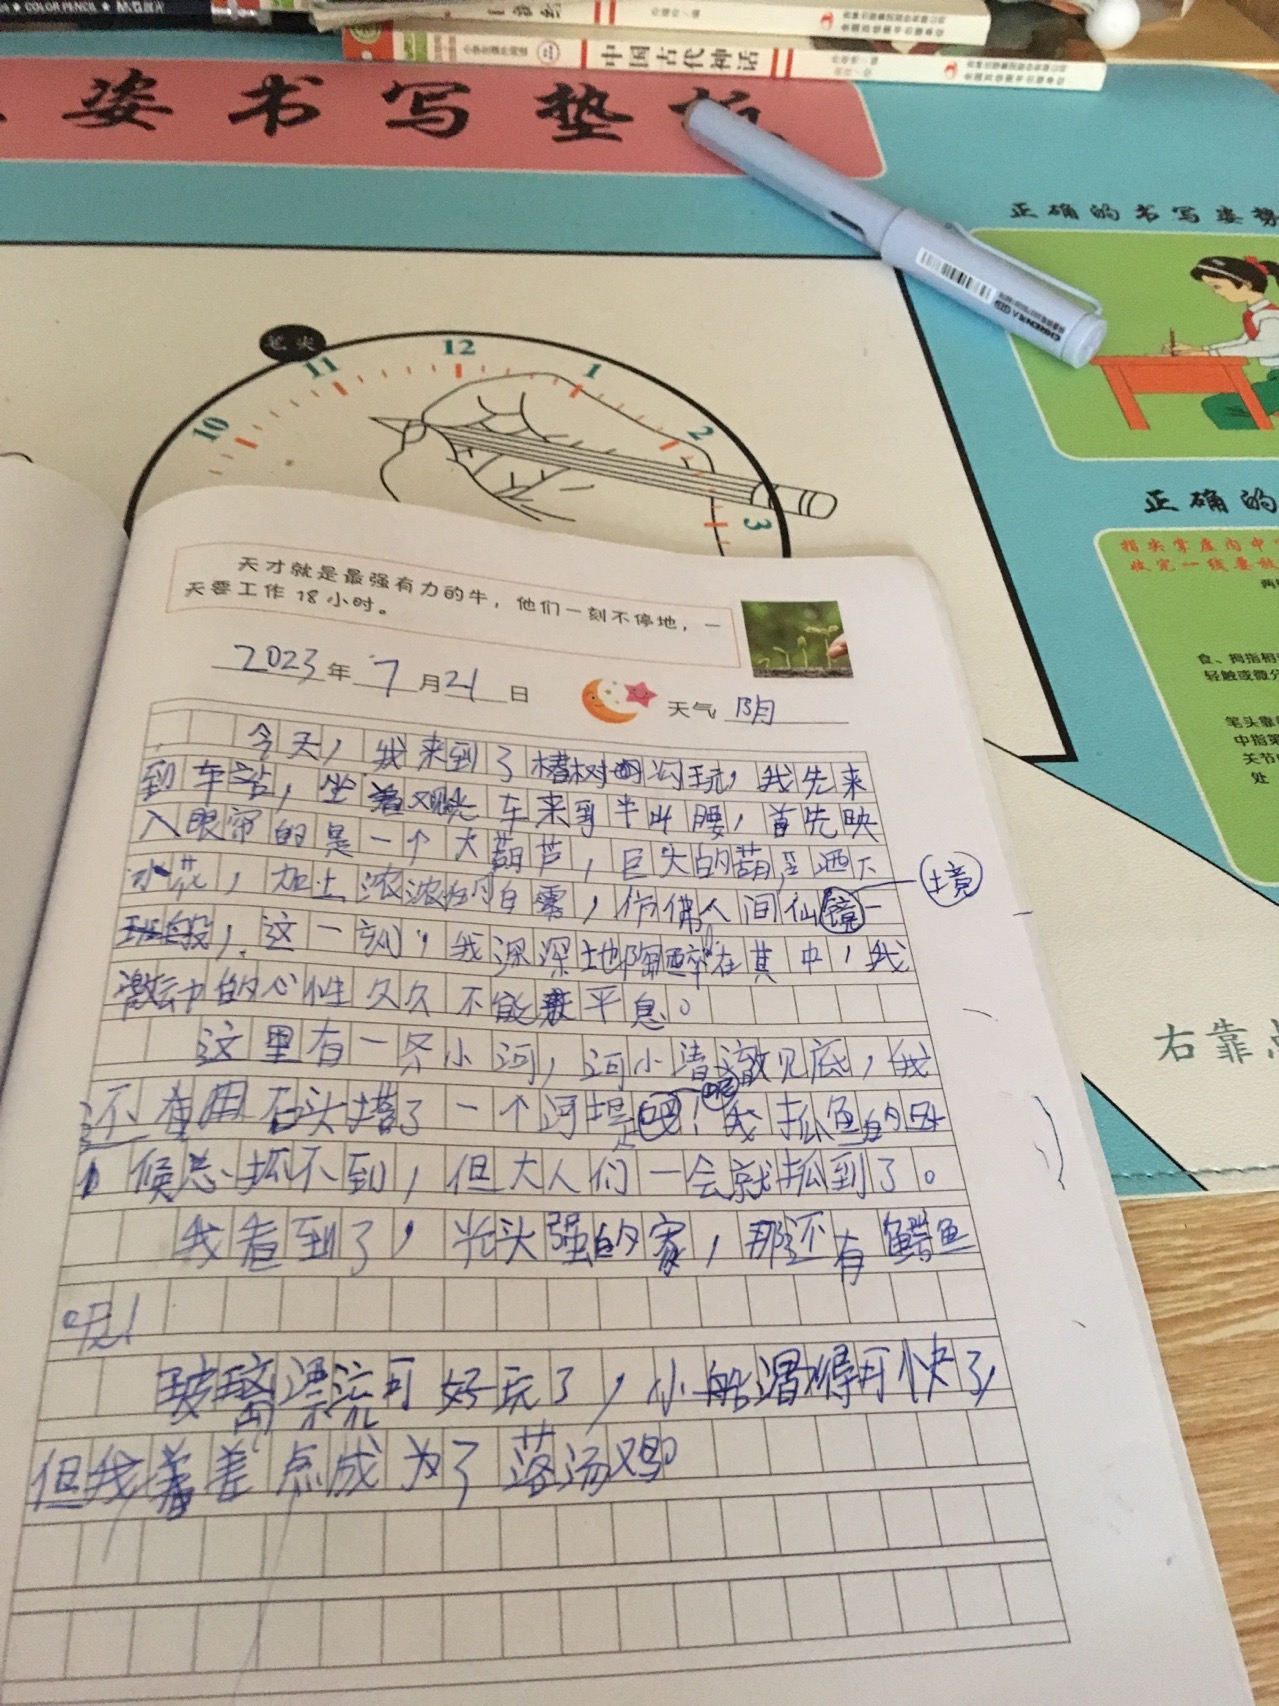 COLOR PENCIL
中国古代神话
姿书写垫板
正确的书写姿势
笔尖
12
11
1
10
2
3
正确的
天才就是最强有力的牛，他们一刻不停地，一
天要工作18小时。
2023年7月21日
天气 阴
今天，我来到了槽树沟玩，我先来
到车站，坐观光车来到半山腰，首先映
入眼帘的是一个大葫芦，巨大的葫芦洒下
水花，加上浓浓的白雾，仿佛人间仙镜一
境
般，这一刻，我深深地陶醉在其中，我
激动的心性久久不能平息。
这里有一条小河，河小清澈见底，我
还用石头搭了一个河堤吧！我抓鱼的时
呢
候总抓不到，但大人们一会就抓到了。
我看到了，光头强的家，那还有鳄鱼
呢！
玻璃漂流可好玩了，小船滑得可快了，
但我差点成为了落汤鸡。
右靠